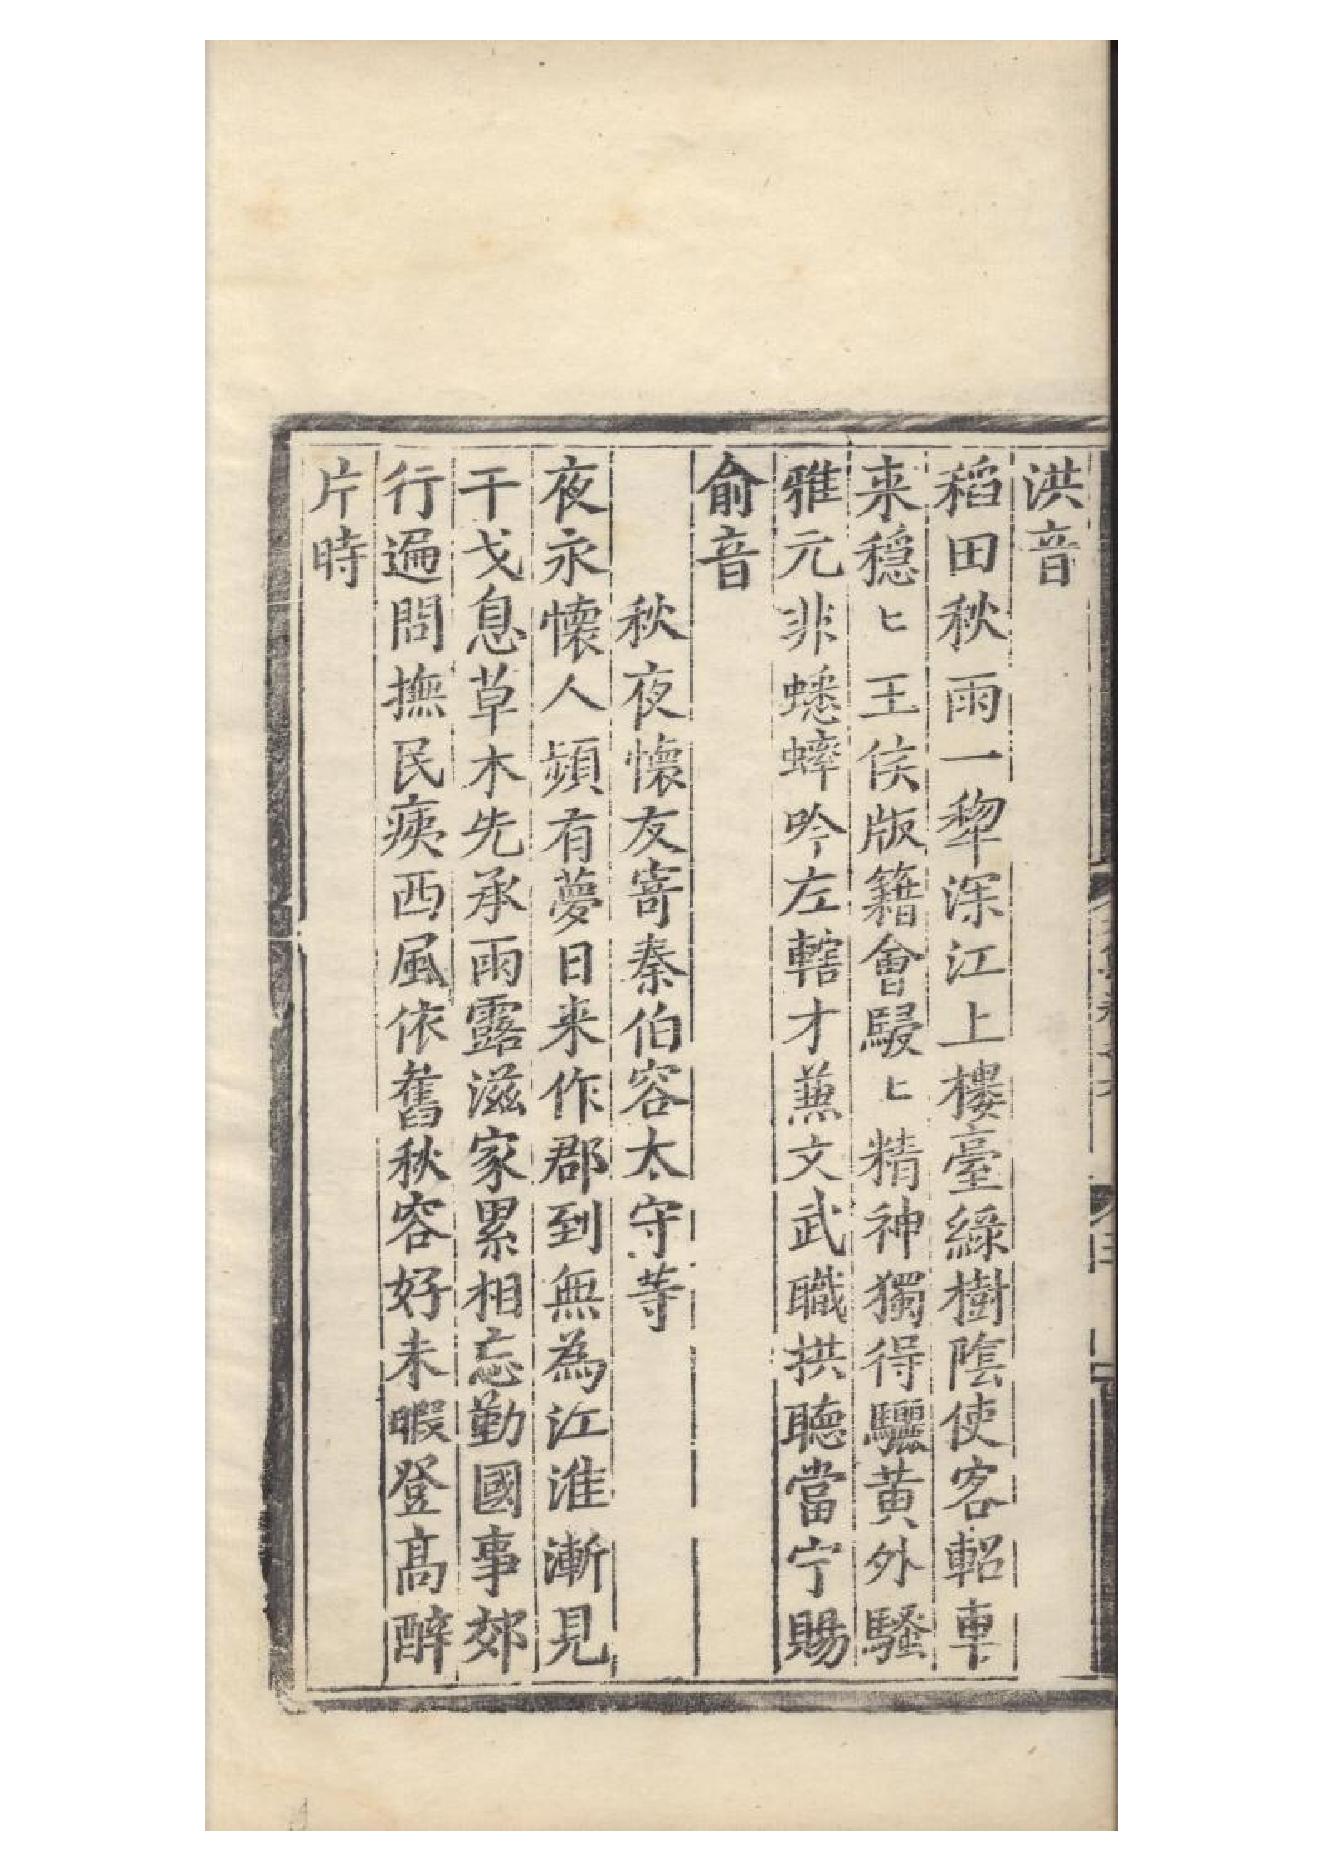 洪音
稻田秋雨一犂深江上樓臺綠樹隂使客軺車
来穩〻王侯版籍會駸〻精神獨得驪黄外騷
雅元非蟋蟀吟左轄才蕙文武職拱聴當宁賜
俞音
秋夜懷友寄秦伯容太守等
夜永懷人頻有夢日来作郡到無為江淮漸見
干戈息草木先承雨露滋家累相忘勤國事郊
行遍問撫民痍西風依舊秋容好未暇登髙醉
片時